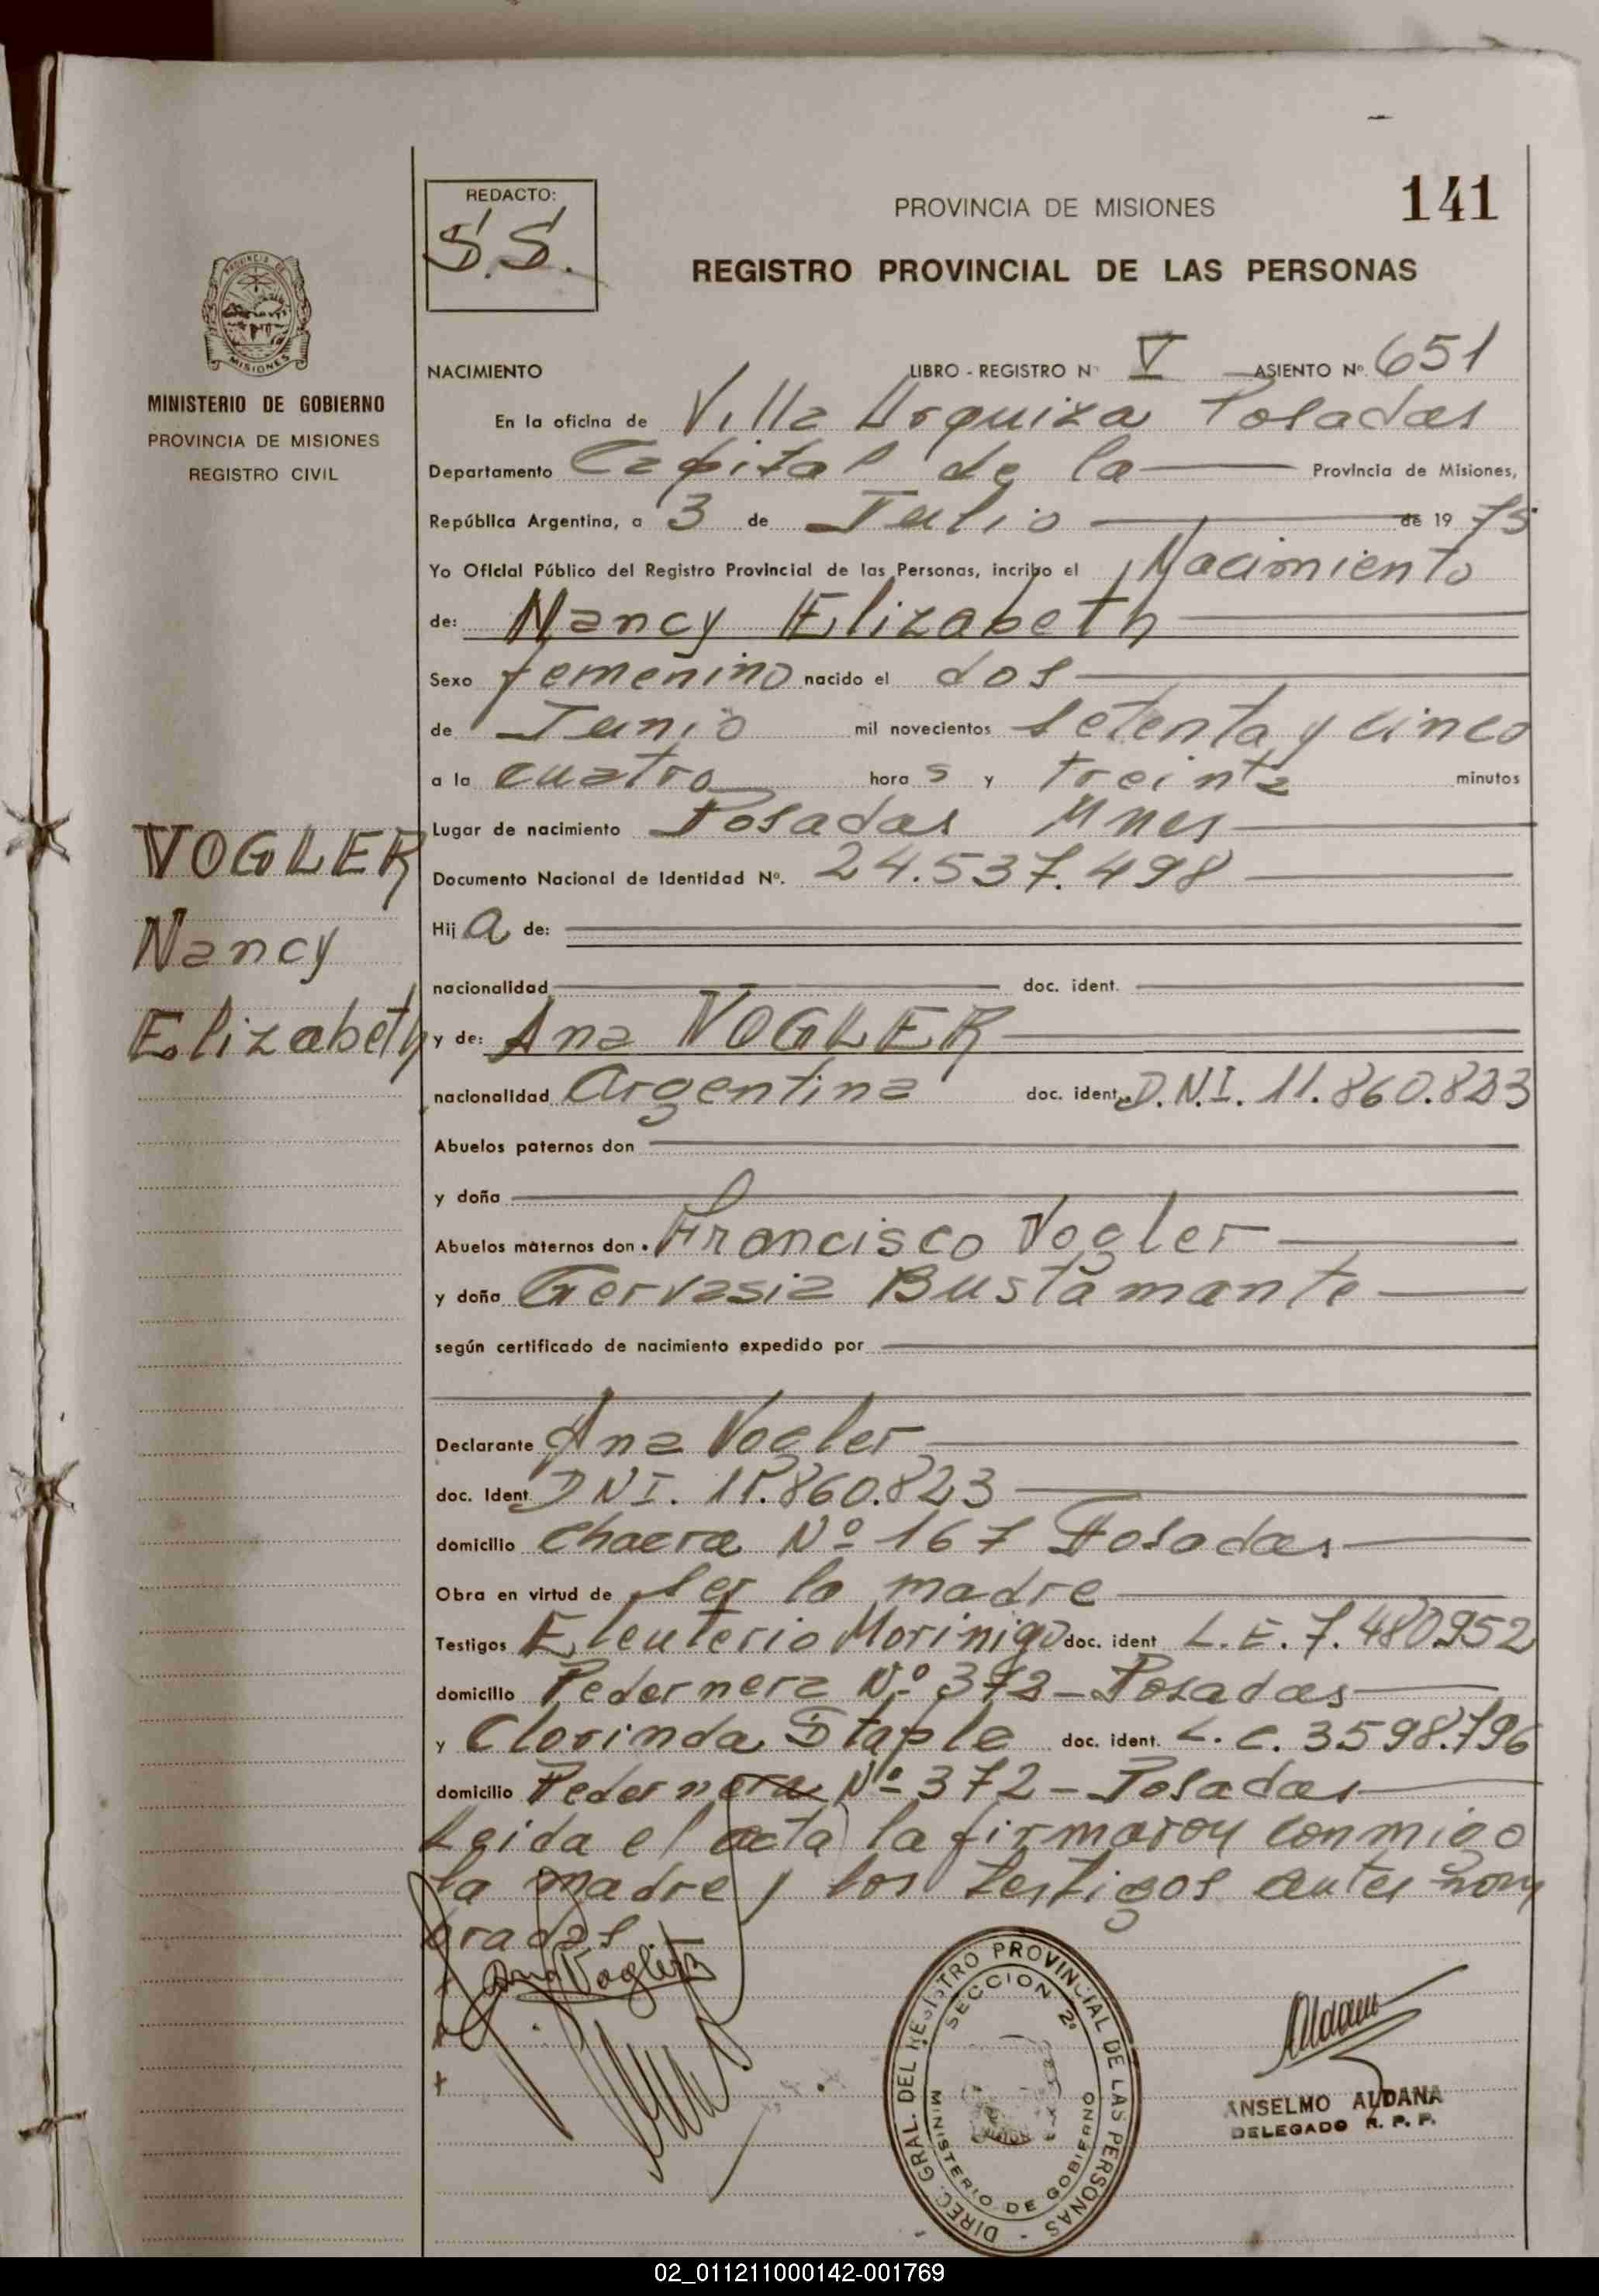 141
REDACTO:
S.S.
PROVINCIA DE MISIONES
REGISTRO PROVINCIAL DE LAS PERSONAS
PROVINCIA DE
MISIONES
MINISTERIO DE GOBIERNO
PROVINCIA DE MISIONES
REGISTRO CIVIL
NACIMIENTO LIBRO - REGISTRO Nº V ASIENTO Nº 651
En la oficina de Villa Urquiza Posadas
Departamento Capital de la Provincia de Misiones,
República Argentina, a 3 de Julio de 19 75
Yo Oficial Público del Registro Provincial de las Personas, incribo el Nacimiento
de: Nancy Elizabeth
Sexo femenino nacido el dos
de Junio mil novecientos setenta y cinco
a la cuatro hora s y treinta minutos
Lugar de nacimiento Posadas Mnes
Documento Nacional de Identidad Nº. 24.537.498
VOGLER
Nancy
Elizabeth
Hij a de:
nacionalidad doc. ident.
y de: Ana VOGLER
nacionalidad Argentina doc. ident. D.N.I. 11.860.823
Abuelos paternos don
y doña
Abuelos maternos don. Francisco Vogler
y doña Gervasia Bustamante
según certificado de nacimiento expedido por
Declarante Ana Vogler
doc. Ident. DNI. 11.860.823
domicilio Chacra Nº 167 Posadas
Obra en virtud de ser la madre
Testigos Eleuterio Morinigo doc. ident L.E. 7.480952
domicilio Pedernera Nº 372 - Posadas
y Clorinda Staple doc. ident. L.C. 3598.796
domicilio Pedernera Nº 372 - Posadas
Leida el acta la firmaron conmigo
la madre y los testigos antes nom
brados
Ana Vogler
DIREC. GRAL. DEL REGISTRO PROVINCIAL DE LAS PERSONAS -
SECCION 2º
MINISTERIO DE GOBIERNO
Aldana
ANSELMO ALDANA
DELEGADO R. P. P.
02_011211000142-001769